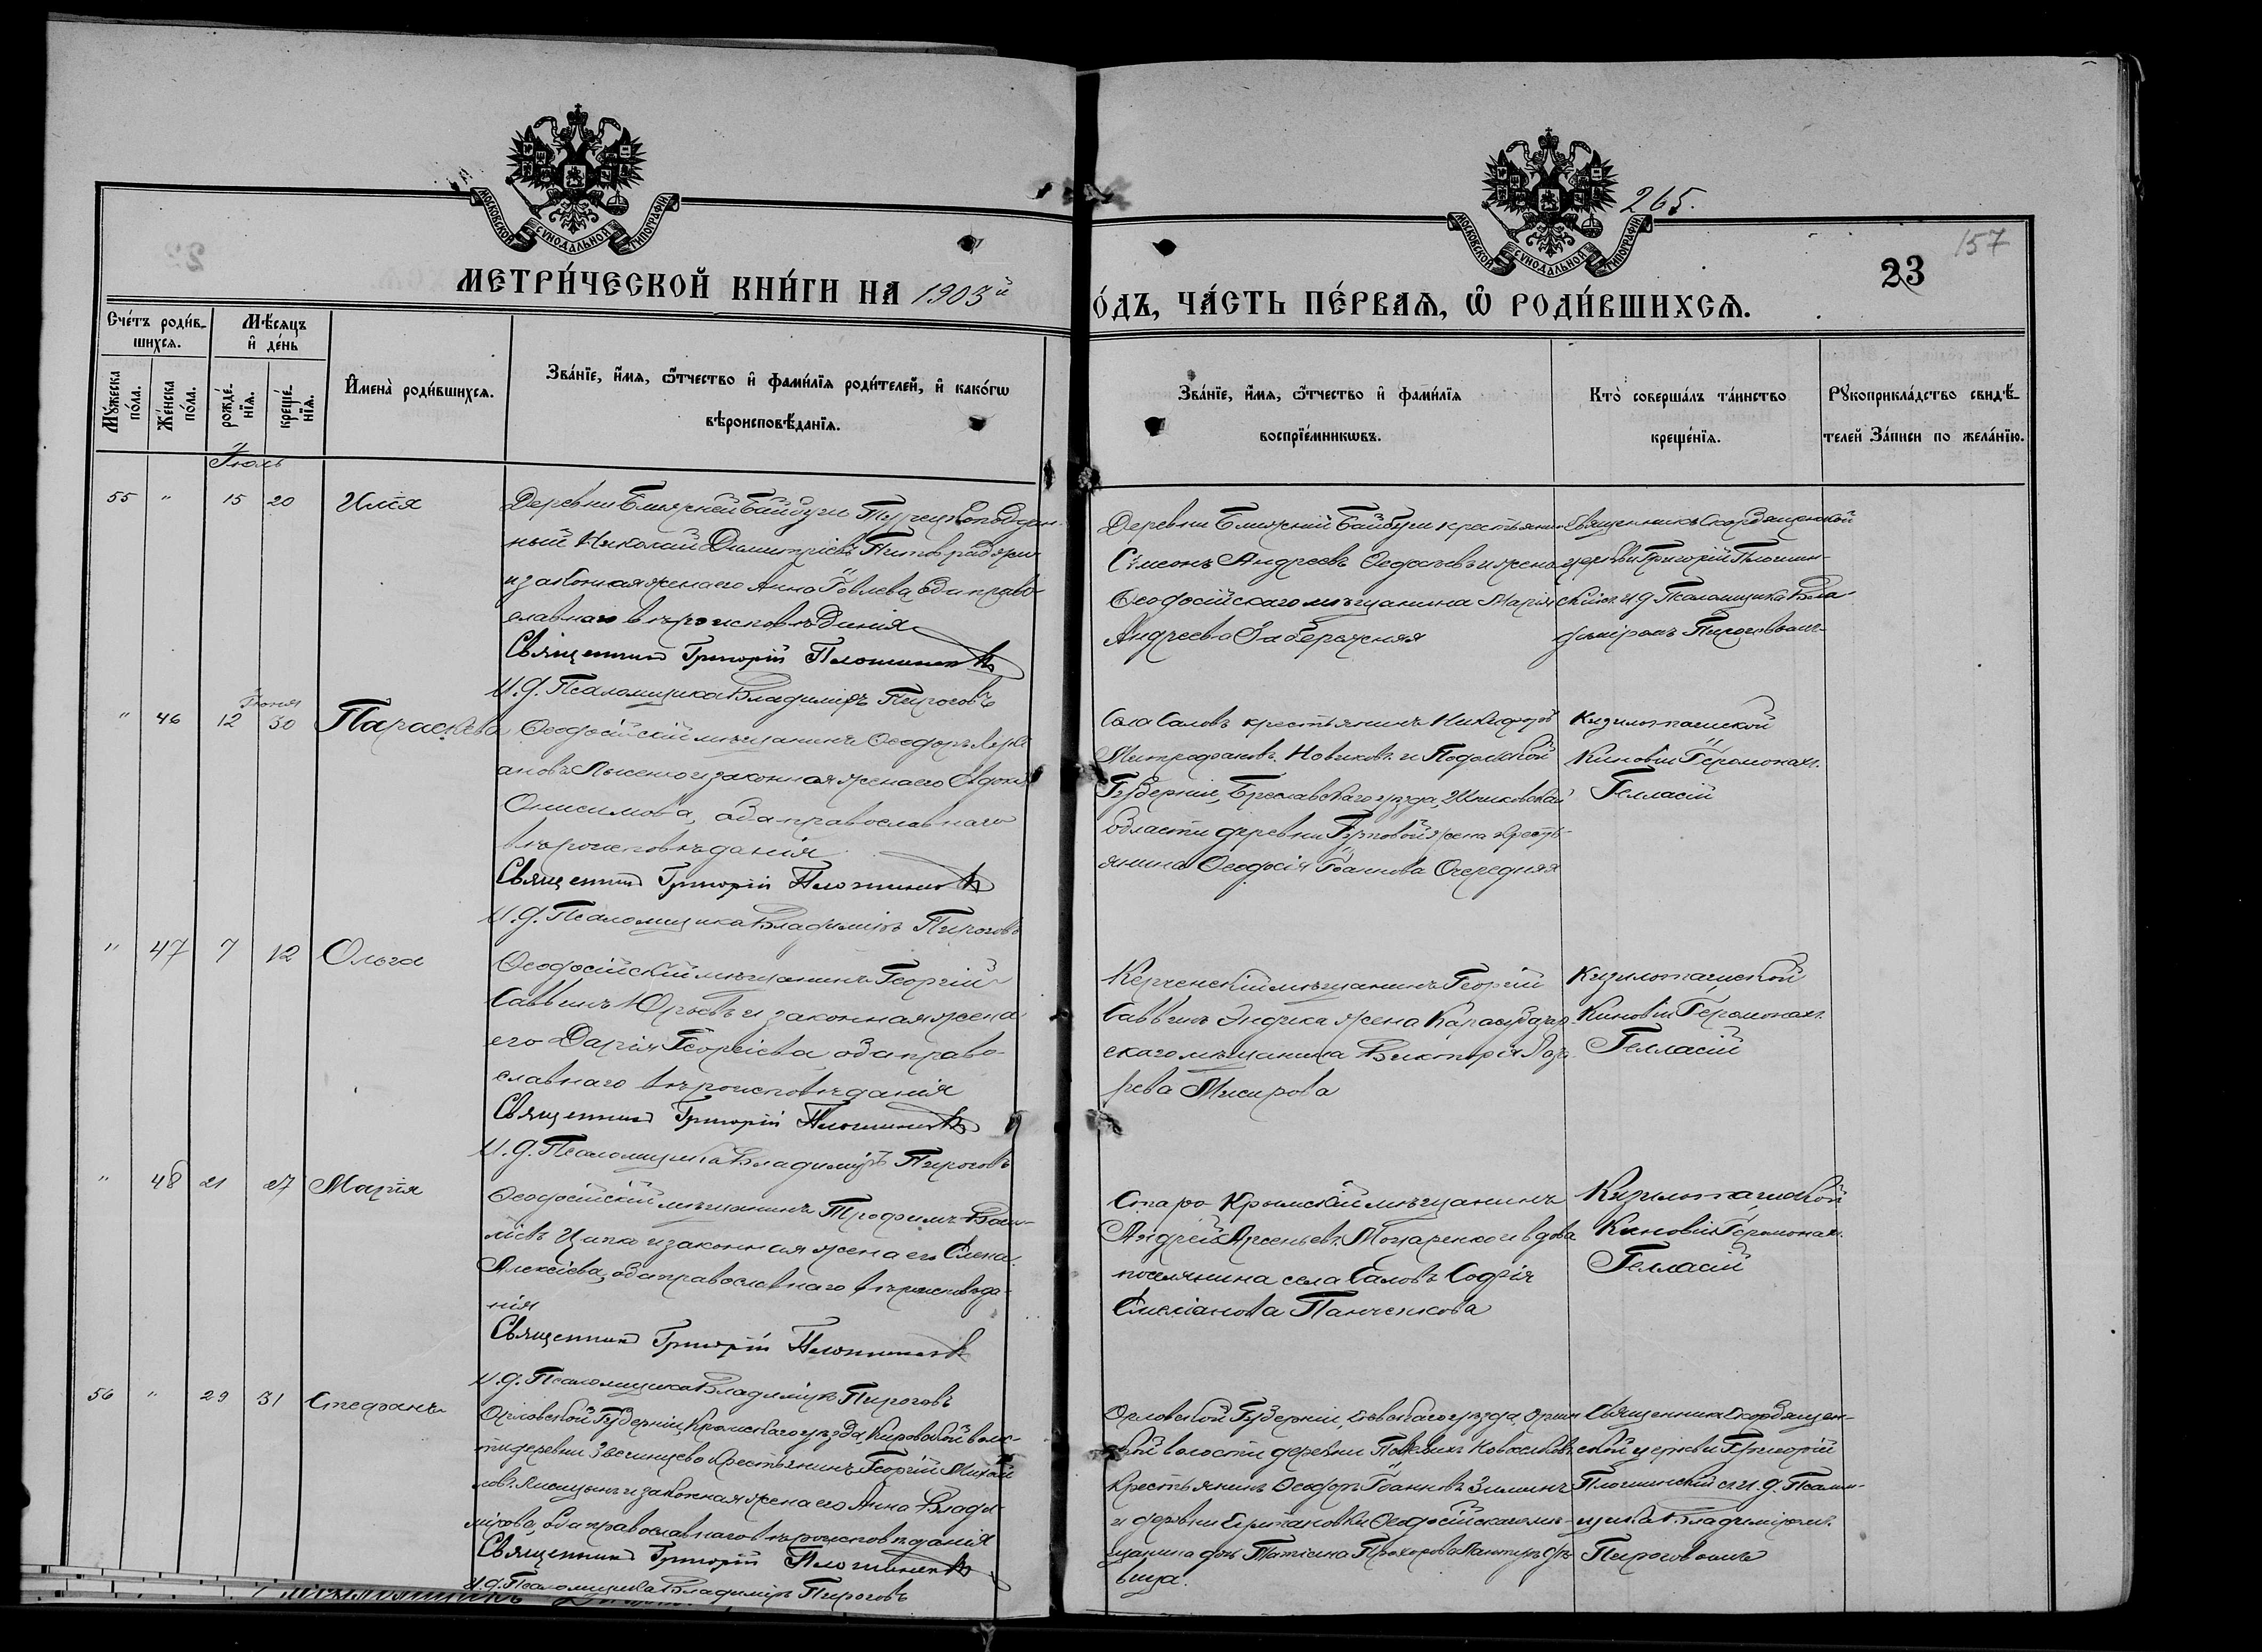 265.
157
23
МОСКОВСКОЙ СѴНОДАЛЬНОЙ ТИПОГРАФІИ
МОСКОВСКОЙ СѴНОДАЛЬНОЙ ТИПОГРАФІИ
МЕТРИ́ЧЕСКОЙ КНИ́ГИ НА 1903й
О́ДЪ, ЧА́СТЬ ПЕ́РВАЯ, Ѡ҆ РОДИ́ВШИХСЯ.
Сче́тъ роди́в-
шихся.
Мѣ́сяцъ
и҆ де́нь
Мꙋ́жеска
по́ла.
Же́нска
по́ла.
рожде́-
нїя.
креще́-
нїя.
И҆мена̀ роди́вшихся.
Зва́нїе, и҆́мя, ѻ҆́тчество и҆ фами́лїя роди́телей, и҆ како́гѡ
вѣроисповѣ́данїя.
Зва́нїе, и҆́мя, ѻ҆́тчество и҆ фами́лїя
воспрїе́мникѡвъ.
Кто̀ соверша́лъ та́инство
креще́нїя.
Рꙋкоприкла́дство свидѣ́-
телей За́писи по жела́нїю.
Іюль
55 " 15 20 Илія
Деревни Ближней Байбуги Турецкоподдан-
ный Николай Димитріевъ
и законная жена его Анна Іовлева, оба право-
славнаго вѣроисповѣданія
Священникъ Григорій Плошинскій
И.д. Псаломщика Владиміръ Пироговъ
Деревни Ближней Байбуги крестьянинъ
Сѵмеонъ Андреевъ и жена
Ѳеодосійскаго мѣщанина Марія
Андреева Забережная
Священникъ Скорбященской
церкви Григорій Плошин-
скій съ и.д. Псаломщика Вла-
диміромъ Пироговымъ
Іюня
" 46 12 30 Параскева
Ѳеодосійскій мѣщанинъ Ѳеодоръ
Лысенко и законная жена его Евдокія
Онисимова, оба православнаго
вѣроисповѣданія
Священникъ Григорій Плошинскій
И.д. Псаломщика Владиміръ Пироговъ
Села Саловъ крестьянинъ Никифоръ
Митрофановъ Новиковъ и Подольской
Губерніи, Брацлавскаго уѣзда, Шпиковской
области деревни жена кресть-
янина Ѳеодосія Іоаннова Очередняя
Кизилташской
Киновіи Іеромонахъ
Гелласій
" 47 7 12 Ольга
Ѳеодосійскій мѣщанинъ Георгій
Саввинъ Юрьевъ и законная жена
его Дарія Георгіева, оба право-
славнаго вѣроисповѣданія
Священникъ Григорій Плошинскій
И.д. Псаломщика Владиміръ Пироговъ
Керченскій мѣщанинъ Георгій
Саввинъ Андрика жена Карасубазар-
скаго мѣщанина Викторія Лаза-
рева Мисирова
Кизилташской
Киновіи Іеромонахъ
Гелласій
" 48 21 27 Марія
Ѳеодосійскій мѣщанинъ Трофимъ Васи-
ліевъ Цапко и законная жена его Елена
Алексіева, оба православнаго вѣроисповѣда-
нія
Священникъ Григорій Плошинскій
И.д. Псаломщика Владиміръ Пироговъ
Старо Крымскій мѣщанинъ
Андрей Арсеньевъ Мошаренко и вдова
поселянина села Саловъ Софія
Емеліанова Панченкова
Кизилташской
Киновіи Іеромонахъ
Гелласій
56 " 29 31 Стефанъ
Орловской Губерніи, Кромскаго уѣзда, Кировской волос-
ти деревни Звегинцево крестьянинъ Георгій Михай-
ловъ Лисицынъ и законная жена его Анна Влади-
мірова, оба православнаго вѣроисповѣданія
Священникъ Григорій Плошинскій
И.д. Псаломщика Владиміръ Пироговъ
Орловской Губерніи, Сѣвскаго уѣзда,
ской волости деревни
Крестьянинъ Ѳеодоръ Іоанновъ Зиминъ
и деревни Султановки Ѳеодосійскаго мѣ-
щанина дочь Татіана Прохорова
вица.
Священникъ Скорбящен-
ской церкви Григорій
Плошинскій съ И.д. Псалом-
щика Владиміромъ
Пироговымъ